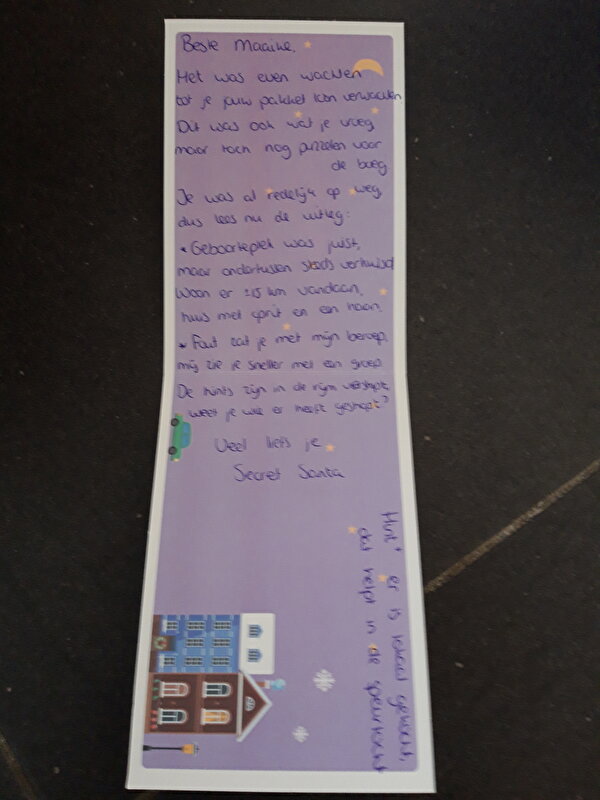 Beste Maaike,
Het was even wachten
tot je jouw pakket kon verwachten
Dit was ook wat je vroeg,
maar toch nog puzzelen voor
de boeg.
Je was al redelijk op weg,
dus lees nu de uitleg:
* Geboorteplek was juist,
maar ondertussen steeds verhuisd
Woon er ±15 km vandaan,
huis met oprit en een haan.
* Fout zat je met mijn beroep,
mij zie je sneller met een groep.
De hints zijn in de rijm verstopt,
weet je wie er heeft geshopt?
Veel liefs je
Secret Santa
Hint: er is lokaal gekocht,
dat helpt in de speurtocht